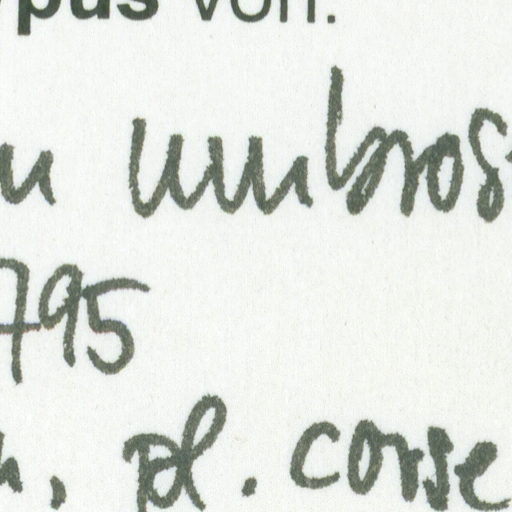 ypus von:
umbros
795
, pl. corse